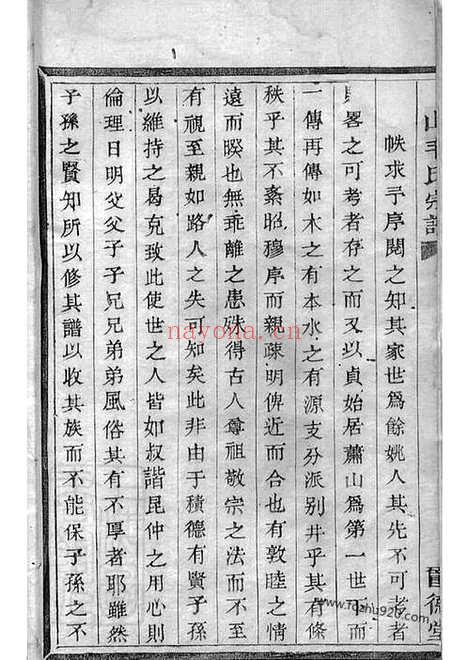 山毛氏宗譜
帙求予序閱之知其家世爲餘姚人其先不可考者
畧之可考者存之而又以貞始居蕭山爲第一世而
一傳再傳如木之有本水之有源支分派別井乎其有條
秩乎其不紊昭穆序而親疎明俾近而合也有敦睦之情
遠而暌也無乖離之患殊得古人尊祖敬宗之法而不至
有視至親如路人之失可知矣此非由于積德有賢子孫
以維持之曷克致此使世之人皆如叔諧昆仲之用心則
倫理日明父父子子兄兄弟弟風俗其有不厚者耶雖然
子孫之賢知所以修其譜以收其族而不能保子孫之不
德堂
nayona.cn